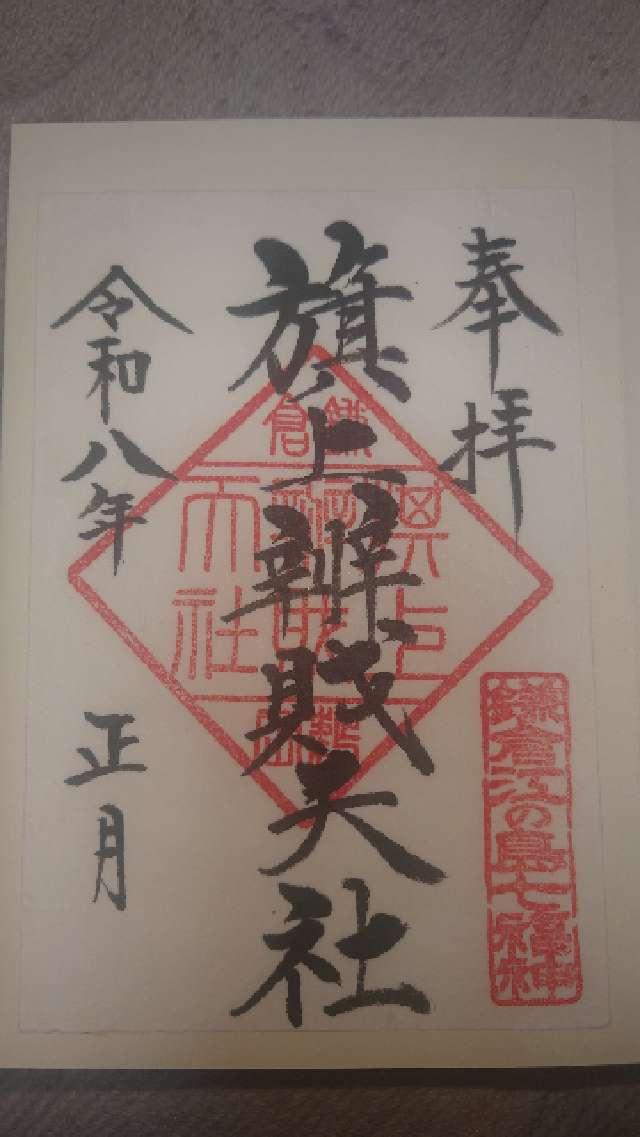 奉拝
旗上辨財天社
令和八年 正月
鎌倉
旗上
辨財
天社
鎌倉江の島七福神